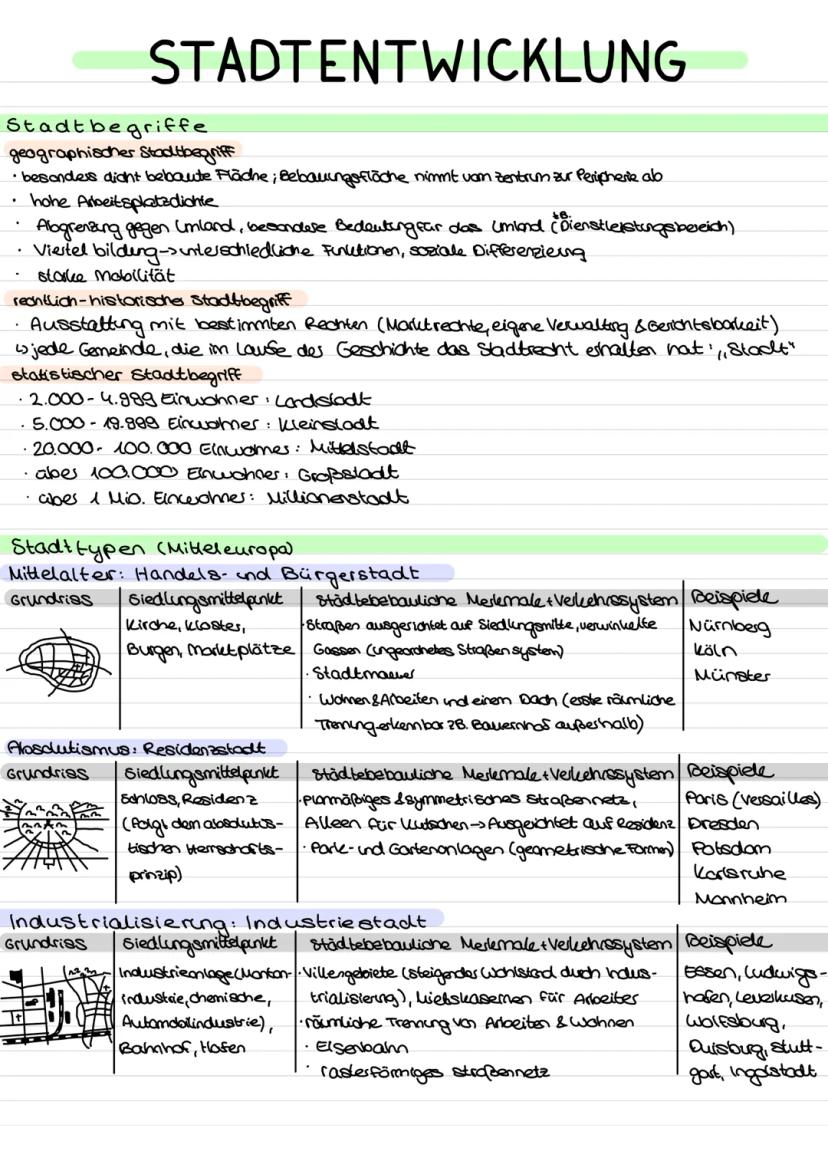 STADTENTWICKLUNG
Stadtbegriffe
geographischer Stadtbegriff
· besonders dicht bebaute Fläche; Bebauungsfläche nimmt vom Zentrum zur Peripherie ab
· hohe Arbeitsplatzdichte
· Abgrenzung gegen Umland, besondere Bedeutung für das Umland (z.B. Dienstleistungsbereich)
· Viertel bildung -> unterschiedliche Funktionen, soziale Differenzierung
· starke Mobilität
rechtlich-historischer Stadtbegriff
· Ausstattung mit bestimmten Rechten (Marktrechte, eigene Verwaltung & Gerichtsbarkeit)
↳ jede Gemeinde, die im Laufe der Geschichte das Stadtrecht erhalten hat: „Stadt"
statistischer Stadtbegriff
· 2.000 - 4.999 Einwohner: Landstadt
· 5.000 - 19.999 Einwohner: Kleinstadt
· 20.000 - 100.000 Einwohner: Mittelstadt
· über 100.000 Einwohner: Großstadt
· über 1 Mio. Einwohner: Millionenstadt
Stadttypen (Mitteleuropa)
Mittelalter: Handels- und Bürgerstadt
Grundriss Siedlungsmittelpunkt Städtebebauliche Merkmale + Verkehrssystem Beispiele
Kirche, Kloster, · Straßen ausgerichtet auf Siedlungsmitte, verwinkelte Nürnberg
Burgen, Marktplätze Gassen (ungeordnetes Straßensystem) Köln
· Stadtmauer Münster
· Wohnen & Arbeiten und einem Dach (erste räumliche
Trennung erkennbar z.B. Bauernhof außerhalb)
Absolutismus: Residenzstadt
Grundriss Siedlungsmittelpunkt Städtebebauliche Merkmale + Verkehrssystem Beispiele
Schloss, Residenz · planmäßiges & symmetrisches Straßennetz, Paris (Versailles)
(folgt dem absolutis- Alleen für Kutschen -> Ausgerichtet auf Residenz Dresden
tischen Herrschafts- · Park- und Gartenanlagen (geometrische Formen) Potsdam
prinzip) Karlsruhe
Mannheim
Industrialisierung: Industriestadt
Grundriss Siedlungsmittelpunkt Städtebebauliche Merkmale + Verkehrssystem Beispiele
Industrieanlage (Montan- · Villengebiete (steigender Wohlstand durch Indus- Essen, Ludwigs-
industrie, chemische, trialisierung), Mietskasernen für Arbeiter hafen, Leverkusen,
Automobilindustrie), · räumliche Trennung von Arbeiten & Wohnen Wolfsburg,
Bahnhof, Hafen · Eisenbahn Duisburg, Stutt-
· rasterförmiges Straßennetz gart, Ingolstadt